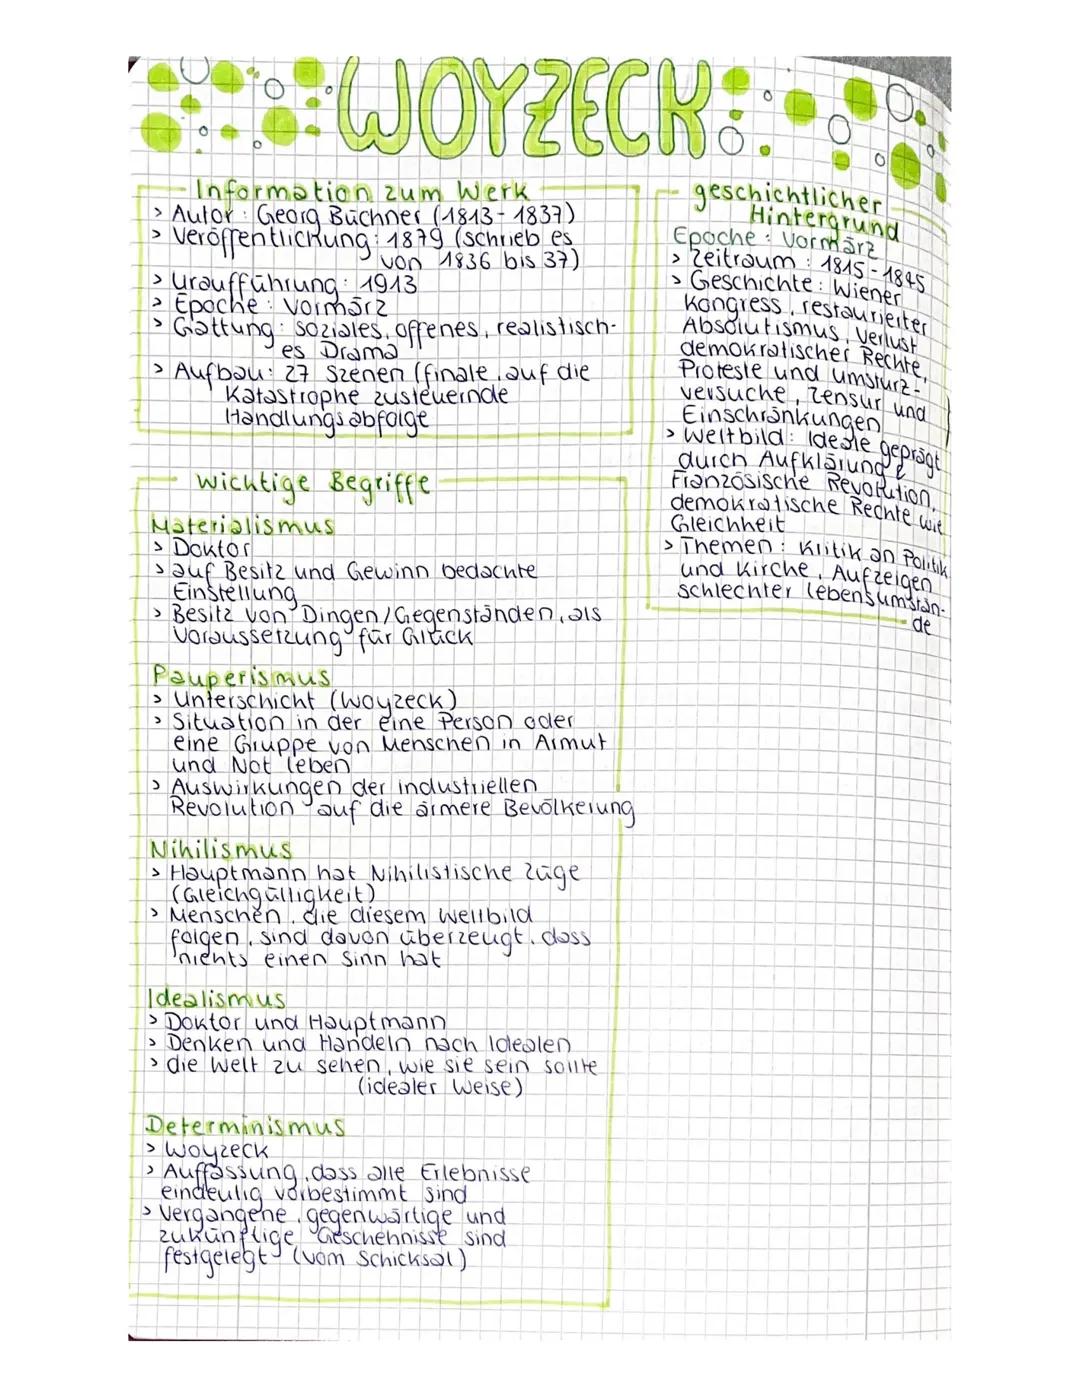 WOYZECK
Information zum Werk
> Autor: Georg Büchner (1813-1837)
> Veröffentlichung: 1879 (schrieb es
von 1836 bis 37)
> Uraufführung: 1913
> Epoche: Vormärz
> Gattung: soziales, offenes, realistisch-
es Drama
> Aufbau: 27 Szenen (finale, auf die
Katastrophe zusteuernde
Handlungsabfolge
wichtige Begriffe
Materialismus
> Doktor
> auf Besitz und Gewinn bedachte
Einstellung
> Besitz von Dingen/Gegenständen, als
Voraussetzung für Glück
Pauperismus
> Unterschicht (Woyzeck)
> Situation in der eine Person oder
eine Gruppe von Menschen in Armut
und Not leben
> Auswirkungen der industriellen
Revolution auf die ärmere Bevölkerung
Nihilismus
> Hauptmann hat Nihilistische Züge
(Gleichgültigkeit)
> Menschen, die diesem Weltbild
folgen, sind davon überzeugt, dass
nichts einen Sinn hat
Idealismus
> Doktor und Hauptmann
> Denken und Handeln nach Idealen
> die Welt zu sehen, wie sie sein sollte
(idealer Weise)
Determinismus
> Woyzeck
> Auffassung, dass alle Erlebnisse
eindeutig vorbestimmt sind
> Vergangene, gegenwärtige und
zukünftige Geschehnisse sind
festgelegt (vom Schicksal)
geschichtlicher
Hintergrund
Epoche: Vormärz
> Zeitraum: 1815-1845
> Geschichte: Wiener
Kongress, restaurierter
Absolutismus, Verlust
demokratischer Rechte,
Proteste und Umsturz-
versuche, Zensur und
Einschränkungen
> Weltbild: Ideale geprägt
durch Aufklärung &
Französische Revolution,
demokratische Rechte wie
Gleichheit
> Themen: Kritik an Politik
und Kirche, Aufzeigen
schlechter Lebensumstän-
de